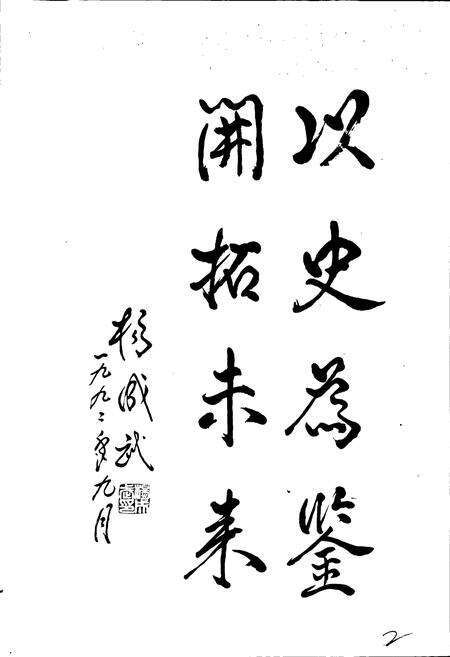 以史為鉴
開拓未来
楊成武
一九九二年九月
2